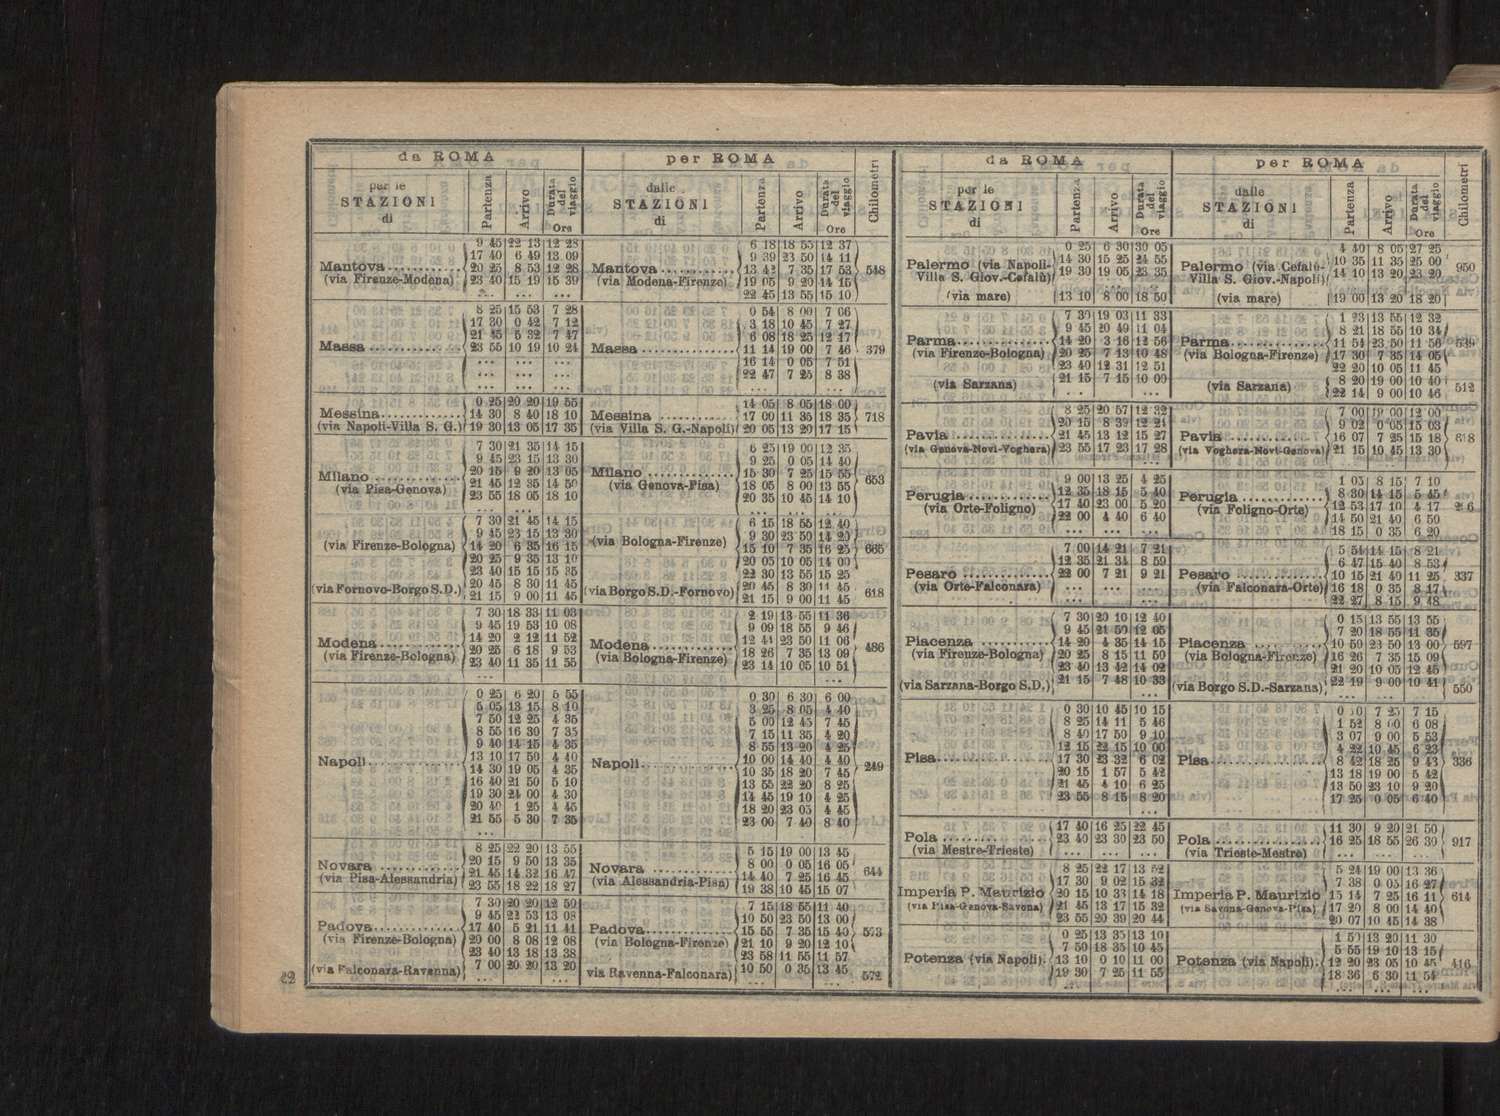 da ROMA
per le STAZIONI di | Partenza | Arrivo | Durata del viaggio Ore
per ROMA
dalle STAZIONI di | Partenza | Arrivo | Durata del viaggio Ore | Chilometri
Mantova (via Firenze-Modena)
9 45 22 13 12 28
17 40 6 49 13 09
20 25 8 53 12 28
23 40 15 19 15 39
Mantova (via Modena-Firenze) 548
6 18 18 55 12 37
9 39 23 50 14 11
13 42 7 35 17 53
19 05 9 20 14 15
22 45 13 55 15 10
Massa
8 25 15 53 7 28
17 30 0 42 7 12
21 45 5 32 7 47
23 55 10 19 10 24
Massa 379
0 54 8 00 7 06
3 18 10 45 7 27
6 08 18 25 12 17
11 14 19 00 7 46
16 14 0 05 7 51
22 47 7 25 8 38
Messina (via Napoli-Villa S. G.)
0 25 20 20 19 55
14 30 8 40 18 10
19 30 13 05 17 35
Messina (via Villa S. G.-Napoli) 718
14 05 8 05 18 00
17 00 11 35 18 35
20 05 13 20 17 15
Milano (via Pisa-Genova)
7 30 21 35 14 15
9 45 23 15 13 30
20 15 9 20 13 05
21 45 12 35 14 50
23 55 18 05 18 10
Milano (via Genova-Pisa) 653
6 25 19 00 12 35
9 25 0 05 14 40
15 30 7 25 15 55
18 05 8 00 13 55
20 35 10 45 14 10
(via Firenze-Bologna)
7 30 21 45 14 15
9 45 23 15 13 30
14 20 6 35 16 15
20 25 9 35 13 10
23 40 15 15 15 35
(via Bologna-Firenze) 665
6 15 18 55 12 40
9 30 23 50 14 20
15 10 7 35 16 25
20 05 10 05 14 00
22 30 13 55 15 25
(via Fornovo-Borgo S.D.)
20 45 8 30 11 45
21 15 9 00 11 45
(via Borgo S.D.-Fornovo) 618
20 45 8 30 11 45
21 15 9 00 11 45
Modena (via Firenze-Bologna)
7 30 18 33 11 03
9 45 19 53 10 08
14 20 2 12 11 52
20 25 6 18 9 53
23 40 11 35 11 55
Modena (via Bologna-Firenze) 486
2 19 13 55 11 36
9 09 18 55 9 46
12 44 23 50 11 06
18 26 7 35 13 09
23 14 10 05 10 51
Napoli
0 25 6 20 5 55
5 05 13 15 8 10
7 50 12 25 4 35
8 55 16 30 7 35
9 40 14 15 4 35
13 10 17 50 4 40
14 30 19 05 4 35
16 40 21 50 5 10
19 30 24 00 4 30
20 40 1 25 4 45
21 55 5 30 7 35
Napoli 249
0 30 6 30 6 00
3 25 8 05 4 40
5 00 12 45 7 45
7 15 11 35 4 20
8 55 13 20 4 25
10 00 14 40 4 40
10 35 18 20 7 45
13 55 22 20 8 25
14 45 19 10 4 25
18 20 23 05 4 45
23 00 7 40 8 40
Novara (via Pisa-Alessandria)
8 25 22 20 13 55
20 15 9 50 13 35
21 45 14 32 16 47
23 55 18 22 18 27
Novara (via Alessandria-Pisa) 644
5 15 19 00 13 45
8 00 0 05 16 05
14 40 7 25 16 45
19 38 10 45 15 07
Padova (via Firenze-Bologna)
7 30 20 20 12 50
9 45 22 53 13 08
17 40 5 21 11 41
20 00 8 08 12 08
23 40 13 18 13 38
Padova (via Bologna-Firenze) 573
7 15 18 55 11 40
10 50 23 50 13 00
15 55 7 35 15 40
21 10 9 20 12 10
23 58 11 55 11 57
(via Falconara-Ravenna)
7 00 20 20 13 20
via Ravenna-Falconara) 572
10 50 0 35 13 45
da ROMA
per le STAZIONI di | Partenza | Arrivo | Durata del viaggio Ore
per ROMA
dalle STAZIONI di | Partenza | Arrivo | Durata del viaggio Ore | Chilometri
Palermo (via Napoli-Villa S. Giov.-Cefalù)
0 25 6 30 30 05
14 30 15 25 24 55
19 30 19 05 23 35
Palermo (via Cefalù-Villa S. Giov.-Napoli) 950
4 40 8 05 27 25
10 35 11 35 25 00
14 10 13 20 23 20
(via mare)
13 10 8 00 18 50
(via mare)
19 00 13 20 18 20
Parma (via Firenze-Bologna)
7 30 19 03 11 33
9 45 20 49 11 04
14 20 3 16 12 56
20 25 7 13 10 48
23 40 12 31 12 51
Parma (via Bologna-Firenze) 539
1 23 13 55 12 32
8 21 18 55 10 34
11 54 23 50 11 56
17 30 7 35 14 05
22 20 10 05 11 45
(via Sarzana)
21 15 7 15 10 00
(via Sarzana) 512
8 20 19 00 10 40
22 14 9 00 10 46
Pavia (via Genova-Novi-Voghera)
8 25 20 57 12 32
20 15 8 39 12 24
21 45 13 12 15 27
23 55 17 23 17 28
Pavia (via Voghera-Novi-Genova)
7 00 19 00 12 00
9 02 0 05 15 03
16 07 7 25 15 18
21 15 10 45 13 30
Perugia (via Orte-Foligno)
9 00 13 25 4 25
12 35 18 15 5 40
17 40 23 00 5 20
22 00 4 40 6 40
Perugia (via Foligno-Orte)
1 05 8 15 7 10
8 30 14 15 5 45
12 53 17 10 4 17
14 50 21 40 6 50
18 15 0 35 6 20
Pesaro (via Orte-Falconara)
7 00 14 21 7 21
12 35 21 34 8 59
22 00 7 21 9 21
Pesaro (via Falconara-Orte) 337
5 54 14 15 8 21
6 47 15 40 8 53
10 15 21 40 11 25
16 18 0 35 8 17
22 27 8 15 9 48
Piacenza (via Firenze-Bologna)
7 30 20 10 12 40
9 45 21 50 12 05
14 20 4 35 14 15
20 25 8 15 11 50
23 40 13 42 14 02
Piacenza (via Bologna-Firenze) 597
0 15 13 55 13 55
7 20 18 55 11 35
10 50 23 50 13 00
16 26 7 35 15 09
21 20 10 05 12 45
(via Sarzana-Borgo S.D.)
21 15 7 48 10 33
(via Borgo S.D.-Sarzana) 550
22 19 9 00 10 41
Pisa
0 30 10 45 10 15
8 25 14 11 5 46
8 40 17 50 9 10
12 15 22 15 10 00
17 30 23 32 6 02
20 15 1 57 5 42
21 45 4 10 6 25
23 55 8 15 8 20
Pisa 336
7 25 7 15
1 52 8 00 6 08
3 07 9 00 5 53
4 22 10 45 6 23
8 42 18 25 9 43
13 18 19 00 5 42
13 50 23 10 9 20
17 25 0 05 6 40
Pola (via Mestre-Trieste)
17 40 16 25 22 45
23 40 23 30 23 50
Pola (via Trieste-Mestre) 917
11 30 9 20 21 50
16 25 18 55 26 30
Imperia P. Maurizio (via Pisa-Genova-Savona)
8 25 22 17 13 52
17 30 9 02 15 32
20 15 10 33 14 18
21 45 13 17 15 32
23 55 20 39 20 44
Imperia P. Maurizio (via Savona-Genova-Pisa) 614
5 24 19 00 13 36
7 38 0 05 16 27
15 14 7 25 16 11
17 20 8 00 14 40
20 07 10 45 14 38
Potenza (via Napoli).
0 25 13 35 13 10
7 50 18 35 10 45
13 10 0 10 11 00
19 30 7 25 11 55
Potenza (via Napoli). 416
1 50 13 20 11 30
5 55 19 10 13 15
12 20 23 05 10 45
18 36 6 30 11 54